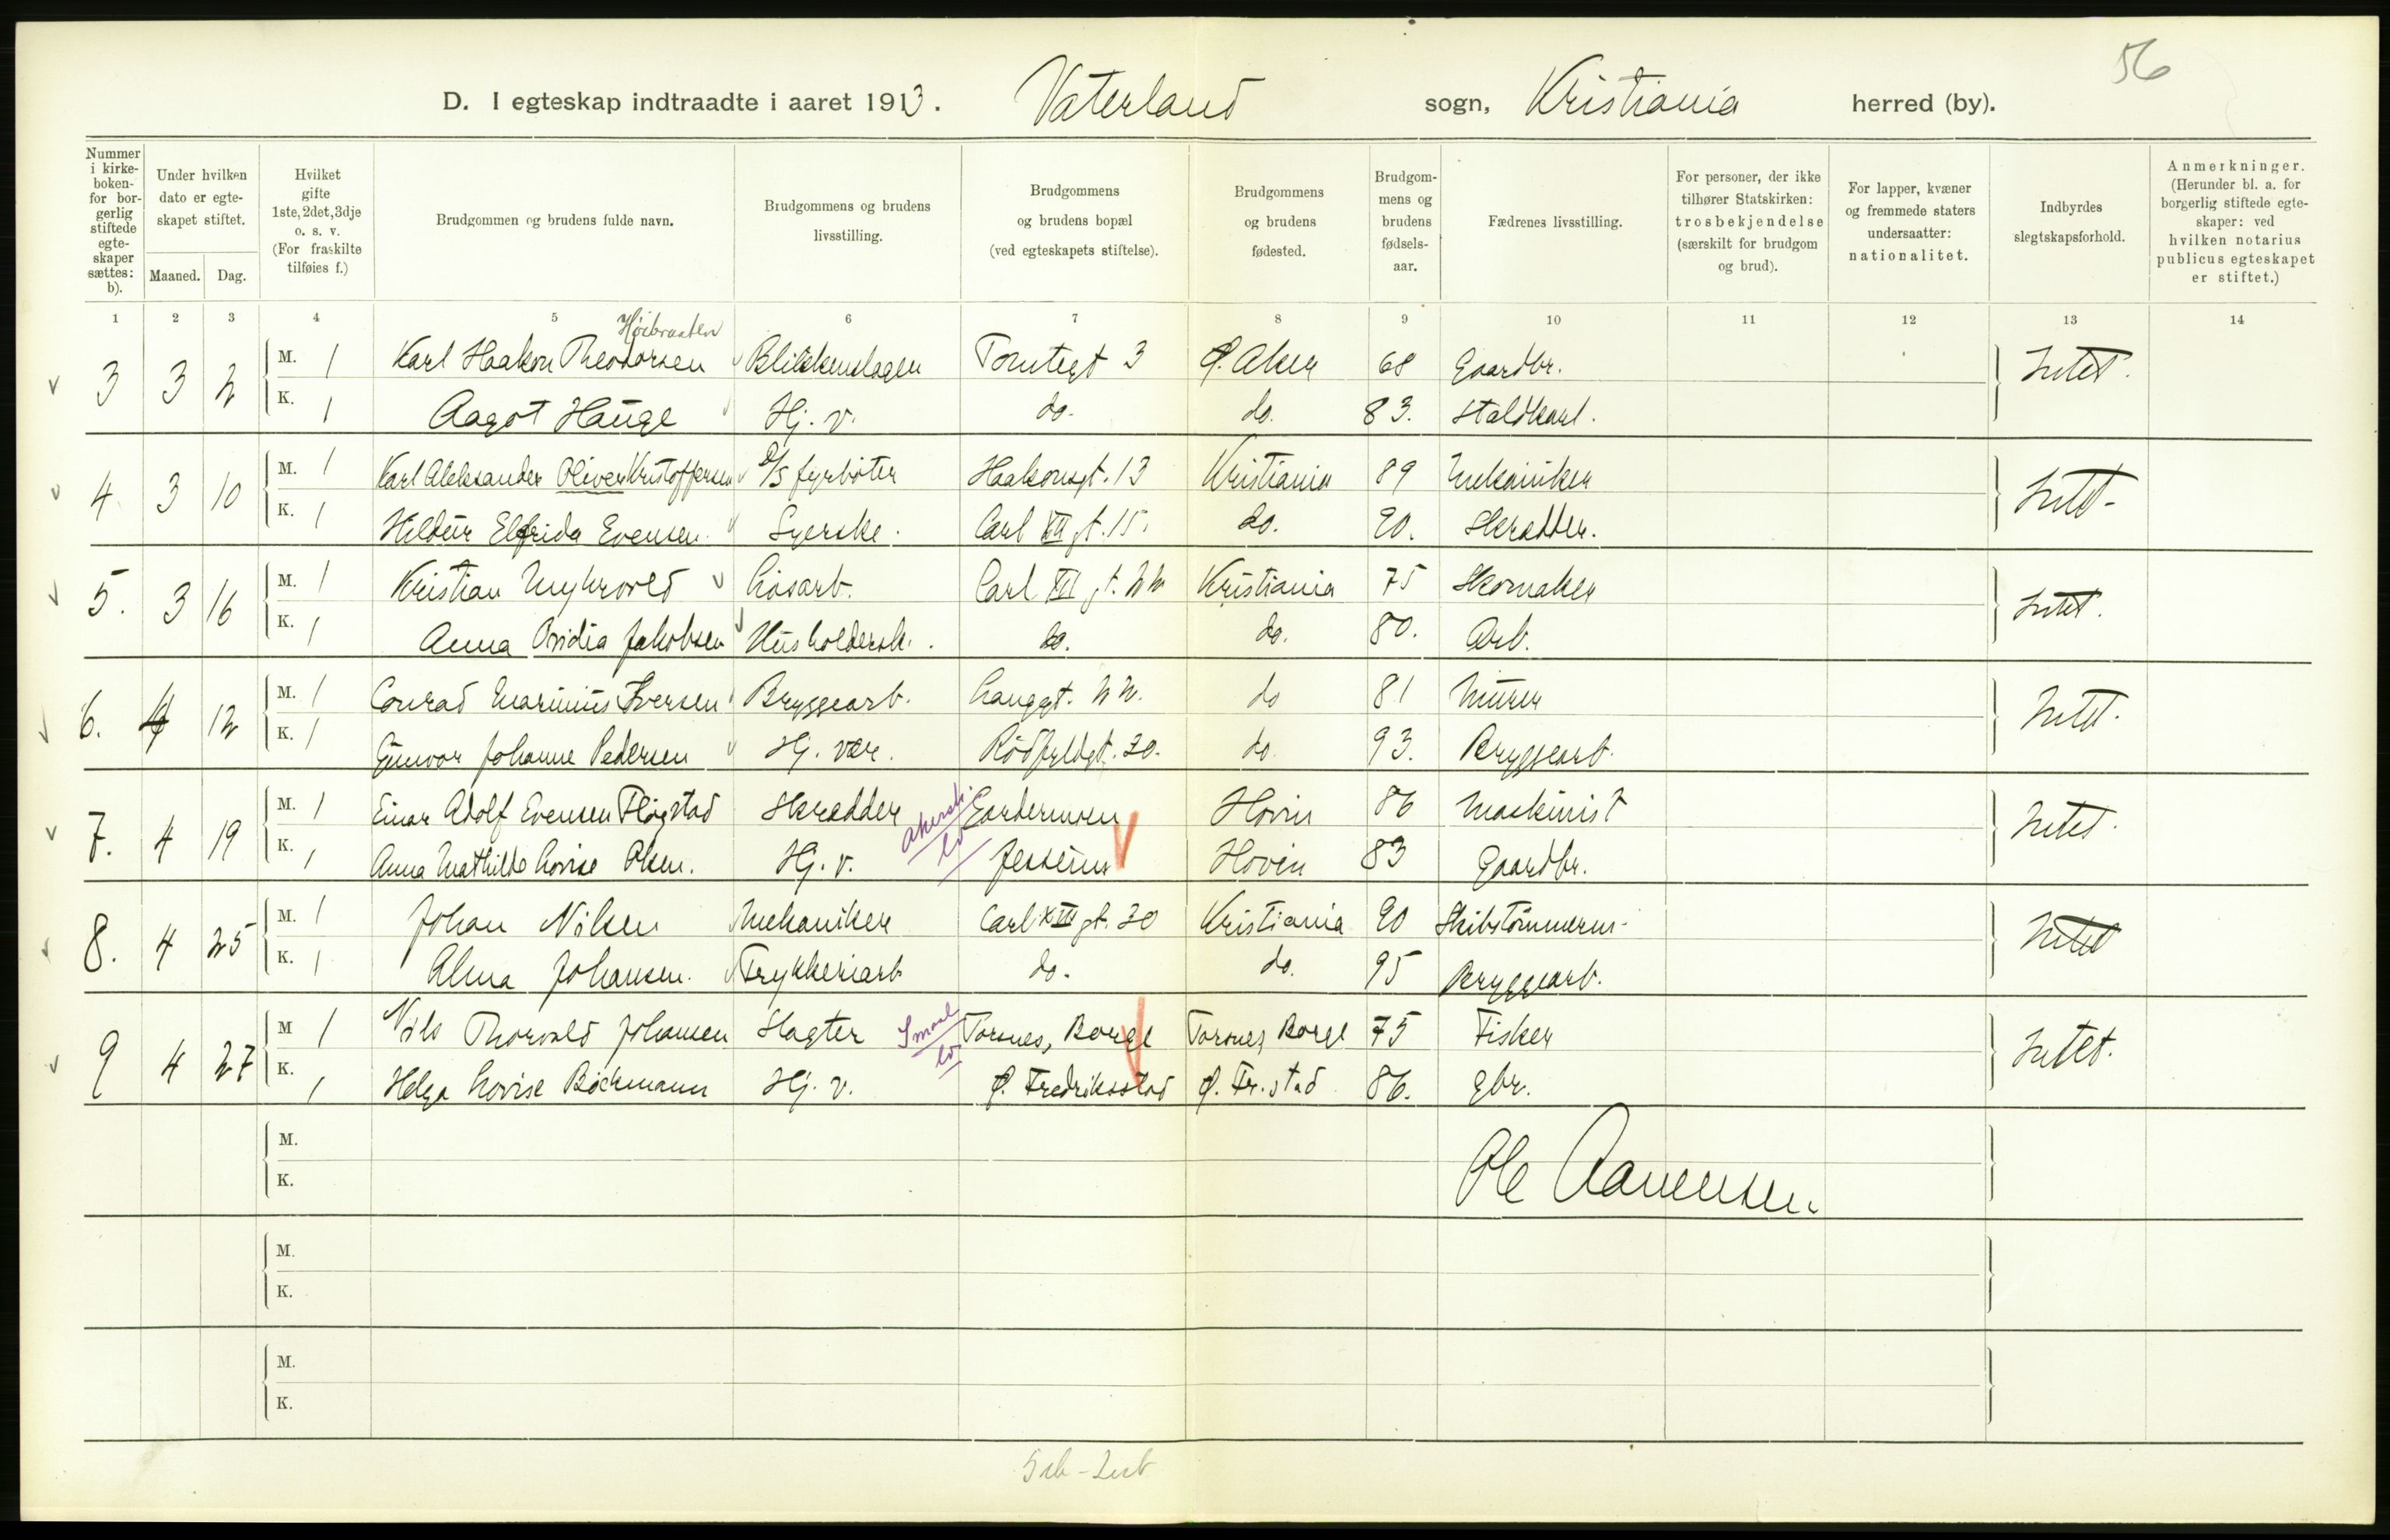 56
D. I egteskap indtraadte i aaret 1913. Vaterland sogn, Kristiania herred (by).
Nummer i kirke-boken- for bor-gerlig stiftede egte-skaper sættes: b).
Under hvilken dato er egte-skapet stiftet.
Maaned. Dag.
Hvilket gifte 1ste, 2det, 3dje o. s. v. (For fraskilte tilføies f.)
Brudgommen og brudens fulde navn.
Brudgommens og brudens livsstilling.
Brudgommens og brudens bopæl (ved egteskapets stiftelse).
Brudgommens og brudens fødested.
Brudgom-mens og brudens fødsels-aar.
Fædrenes livsstilling.
For personer, der ikke tilhører Statskirken: trosbekjendelse (særskilt for brudgom og brud).
For lapper, kvæner og fremmede staters undersaatter: nationalitet.
Indbyrdes slegtskapsforhold.
Anmerkninger. (Herunder bl. a. for borgerlig stiftede egte-skaper: ved hvilken notarius publicus egteskapet er stiftet.)
1 2 3 4 5 6 7 8 9 10 11 12 13 14
Høibraaten
3 3 2 M. 1 Karl Haakon Theodorsen Blikkenslager Tomtegt 3 Ø. Aker 68 Gaardbr. Intet.
K. 1 Aagot Hauge Hj. v. do. do. 83. Staldkarl.
4 3 10 M. 1 Karl Aleksander Oliver Kristoffersen D/S fyrbøter Haakonsgt. 13 Kristiania 89 Mekaniker Intet.
K. 1 Hildur Elfrida Evensen. Syerske. Carl XII gt. 15. do. 90. Skrædder.
5. 3 16 M. 1 Kristian Myhrvold Løsarb. Carl XII gt. 22 Kristiania 75 Skomaker Intet.
K. 1 Anna Ovidia Jakobsen Husholdersk. do. do. 80. Arb.
6. 4 12 M. 1 Conrad Marinius Iversen Bryggearb. Langgt. 22. do 81 Murer Intet.
K. 1 Gunvor Johanne Pedersen Hj. vær. Rødfyldgt. 20. do. 93. Bryggearb.
7. 4 19 M. 1 Einar Adolf Evensen Flogstad Skrædder Akersh. Gardermoen Hovin 86 Maskinist Intet.
K. 1 Anna Mathilde Lovise Olsen. Hj. v. do Jessum Hovin 83 Gaardbr.
8. 4 25 M. 1 Johan Nilsen Mekaniker Carl XII gt. 20 Kristiania 90 Skibstømmerm. Intet
K. 1 Alma Johansen. Trykkeriarb do. do. 95 Bryggearb.
9 4 27 M 1 Nils Thorvald Johansen Slagter Smaal Torsnes, Borge Torsnes, Borge 75 Fisker Intet.
K. 1 Helga Lovise Böckmann Hj. v. do Ø. Fredriksstad Ø. Fr.stad 86. Gbr.
M.
K.
Ole Aanensen.
M.
K.
M.
K.